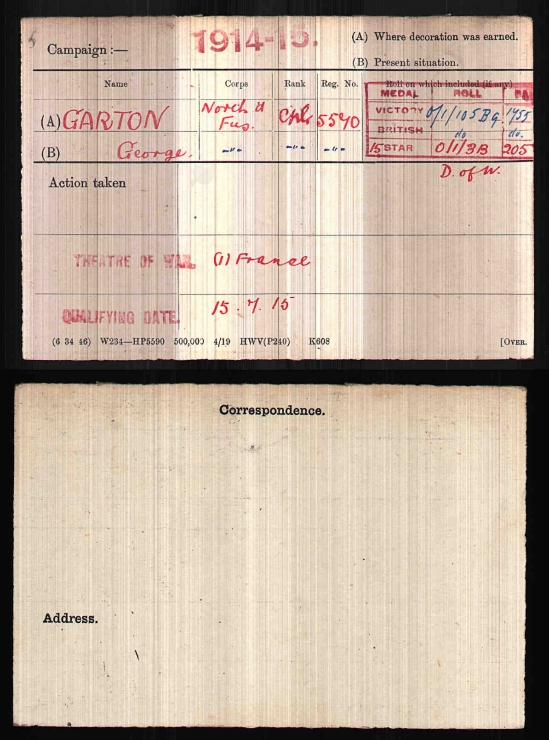 Campaign :— 1914-15.
(A) Where decoration was earned.
(B) Present situation.
Name Corps Rank Reg. No. Roll on which included (if any)
MEDAL ROLL
(A) GARTON North'd Fus. Cpl 5540
VICTORY O/1/105B9 1455
(B) George. -"- -"- -"-
BRITISH do do.
15 STAR O/1/3B 205
D. of W.
Action taken
THEATRE OF WAR. (1) France
QUALIFYING DATE. 15.7.15
(6 34 46) W234—HP5590 500,000 4/19 HWV(P240) K608 [OVER.
Correspondence.
Address.